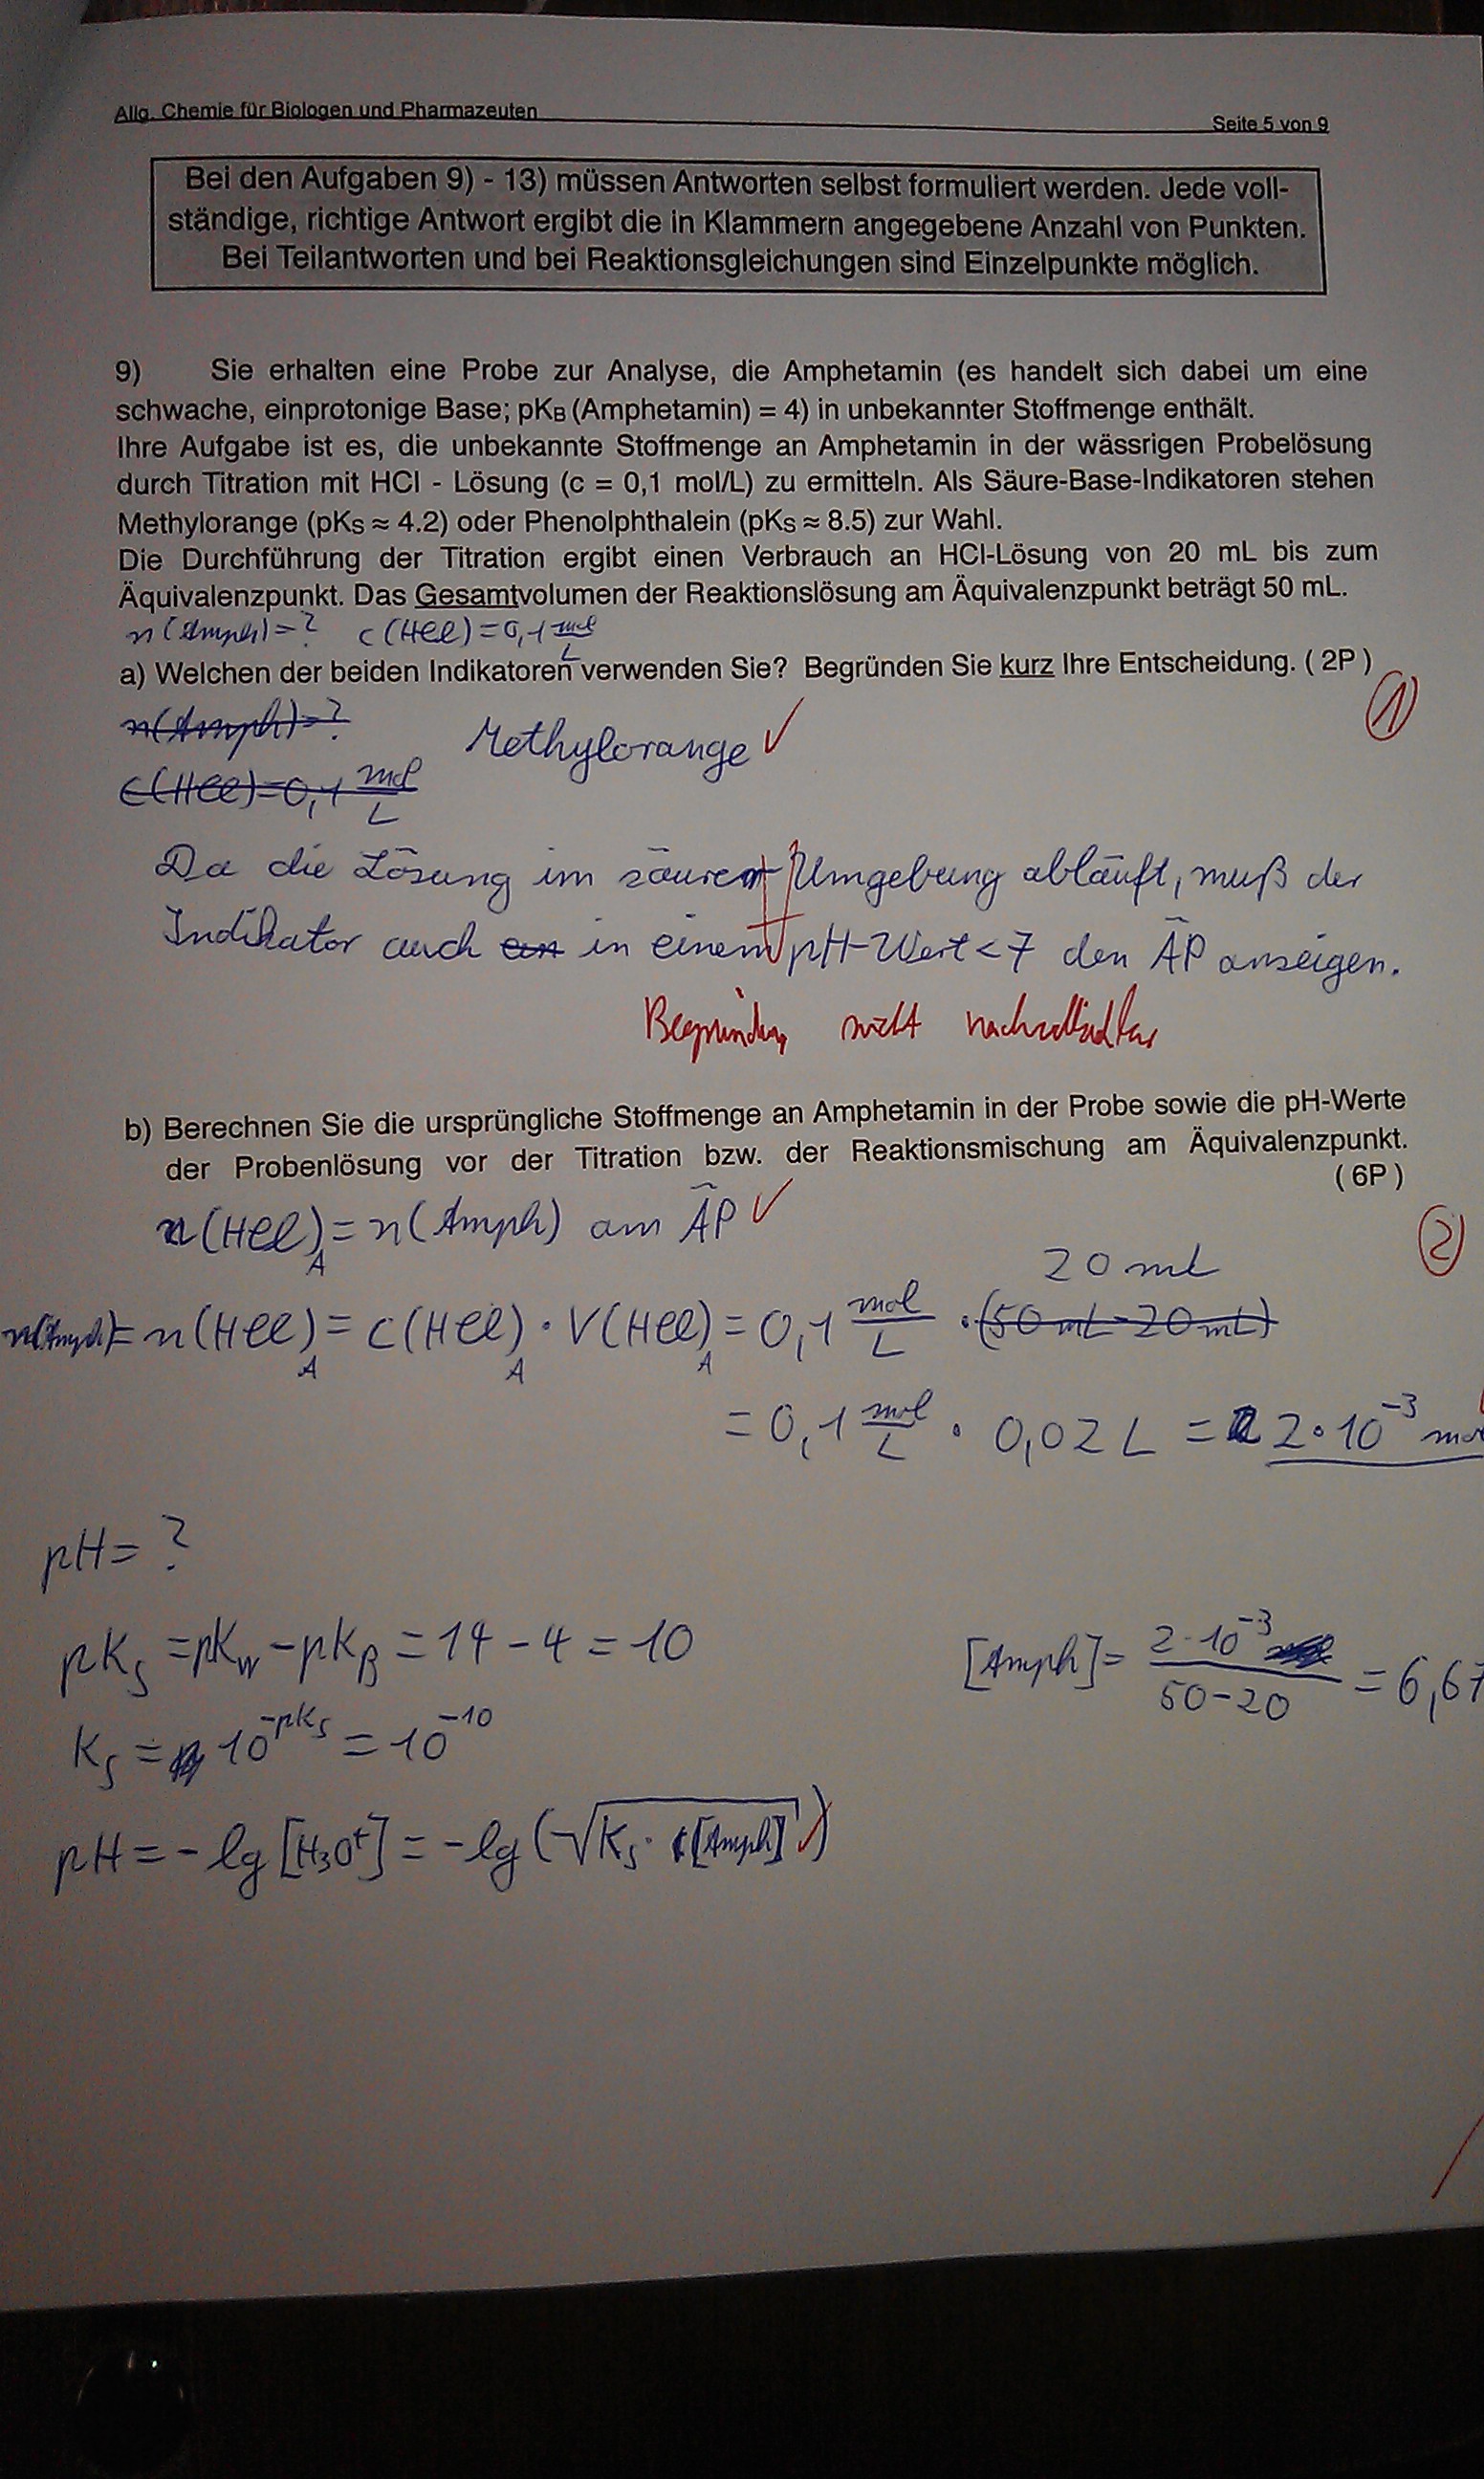 Allg. Chemie für Biologen und Pharmazeuten
Seite 5 von 9
Bei den Aufgaben 9) - 13) müssen Antworten selbst formuliert werden. Jede voll-
ständige, richtige Antwort ergibt die in Klammern angegebene Anzahl von Punkten.
Bei Teilantworten und bei Reaktionsgleichungen sind Einzelpunkte möglich.
9) Sie erhalten eine Probe zur Analyse, die Amphetamin (es handelt sich dabei um eine
schwache, einprotonige Base; pKB (Amphetamin) = 4) in unbekannter Stoffmenge enthält.
Ihre Aufgabe ist es, die unbekannte Stoffmenge an Amphetamin in der wässrigen Probelösung
durch Titration mit HCl - Lösung (c = 0,1 mol/L) zu ermitteln. Als Säure-Base-Indikatoren stehen
Methylorange (pKs ≈ 4.2) oder Phenolphthalein (pKs ≈ 8.5) zur Wahl.
Die Durchführung der Titration ergibt einen Verbrauch an HCl-Lösung von 20 mL bis zum
Äquivalenzpunkt. Das Gesamtvolumen der Reaktionslösung am Äquivalenzpunkt beträgt 50 mL.
n(Amph)=? c(HCl)=0,1 mol/L
a) Welchen der beiden Indikatoren verwenden Sie? Begründen Sie kurz Ihre Entscheidung. ( 2P )
1
n(Amph)=?
Methylorange ✓
c(HCl)=0,1 mol/L
Da die Lösung im säuren Umgebung abläuft, muß der
Indikator auch ein in einem pH-Wert < 7 den ÄP anzeigen.
Begründung nicht nachvollziehbar
b) Berechnen Sie die ursprüngliche Stoffmenge an Amphetamin in der Probe sowie die pH-Werte
der Probenlösung vor der Titration bzw. der Reaktionsmischung am Äquivalenzpunkt.
( 6P )
n(HCl)A = n(Amph) am ÄP ✓
2
20 mL
n(Amph)= n(HCl)A = c(HCl)A · V(HCl)A = 0,1 mol/L · (50 mL-20 mL)
= 0,1 mol/L · 0,02 L = 2·10⁻³ mol
pH = ?
pKS = pKW - pKB = 14 - 4 = 10
[Amph] = 2·10⁻³ / 50-20 = 6,67
KS = 10^-pKS = 10⁻¹⁰
pH = -lg [H₃O⁺] = -lg (√KS · [Amph]) ✓